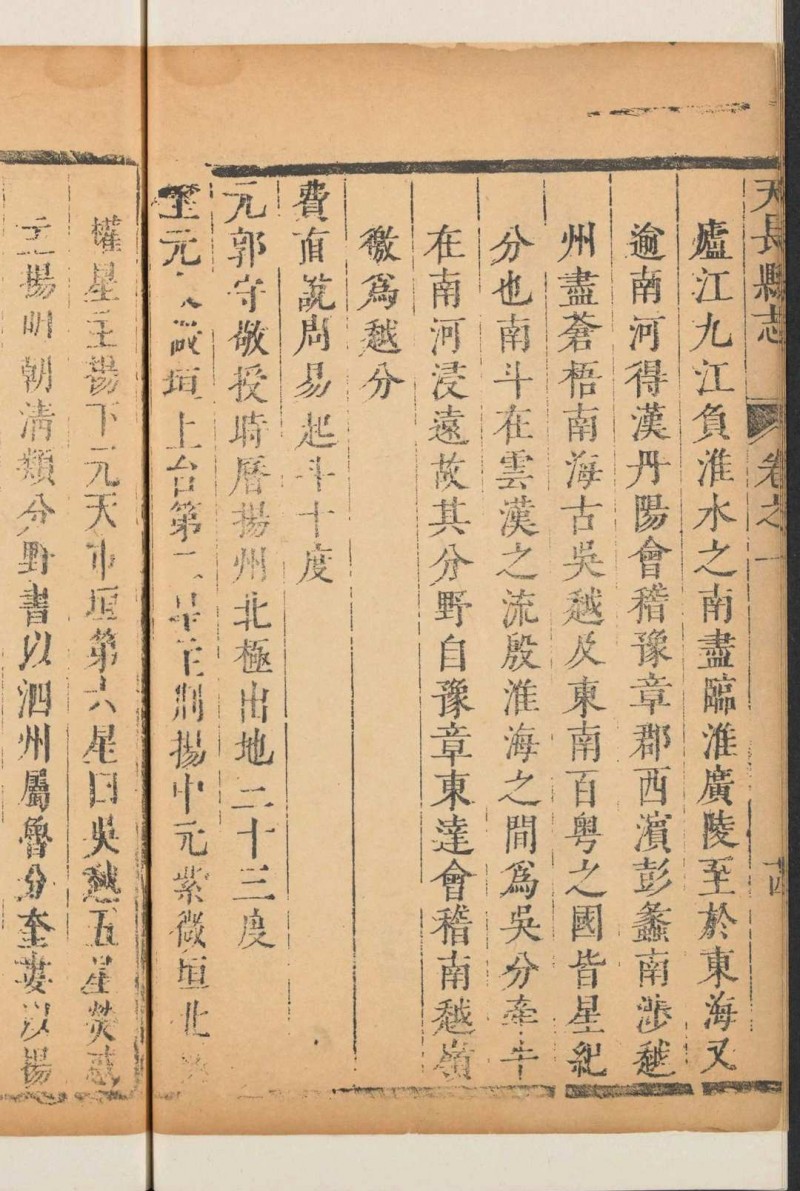 天長縣志 卷之一 十四
廬江九江負淮水之南盡臨淮廣陵至於東海又
逾南河得漢丹陽會稽豫章郡西濱彭蠡南涉越
州盡蒼梧南海古吳越及東南百粵之國皆星紀
分也南斗在雲漢之流殷淮海之間為吳分牽牛
在南河浸遠故其分野自豫章東達會稽南越嶺
徼為越分
費直說周易起斗十度
元郭守敬授時曆揚州北極出地二十三度
至元 微垣上台第二星主荊揚中元紫微垣北
權星主揚下元天市垣第六星曰吳越五星熒惑
主揚明朝清類分野書以泗州屬魯分奎婁以揚